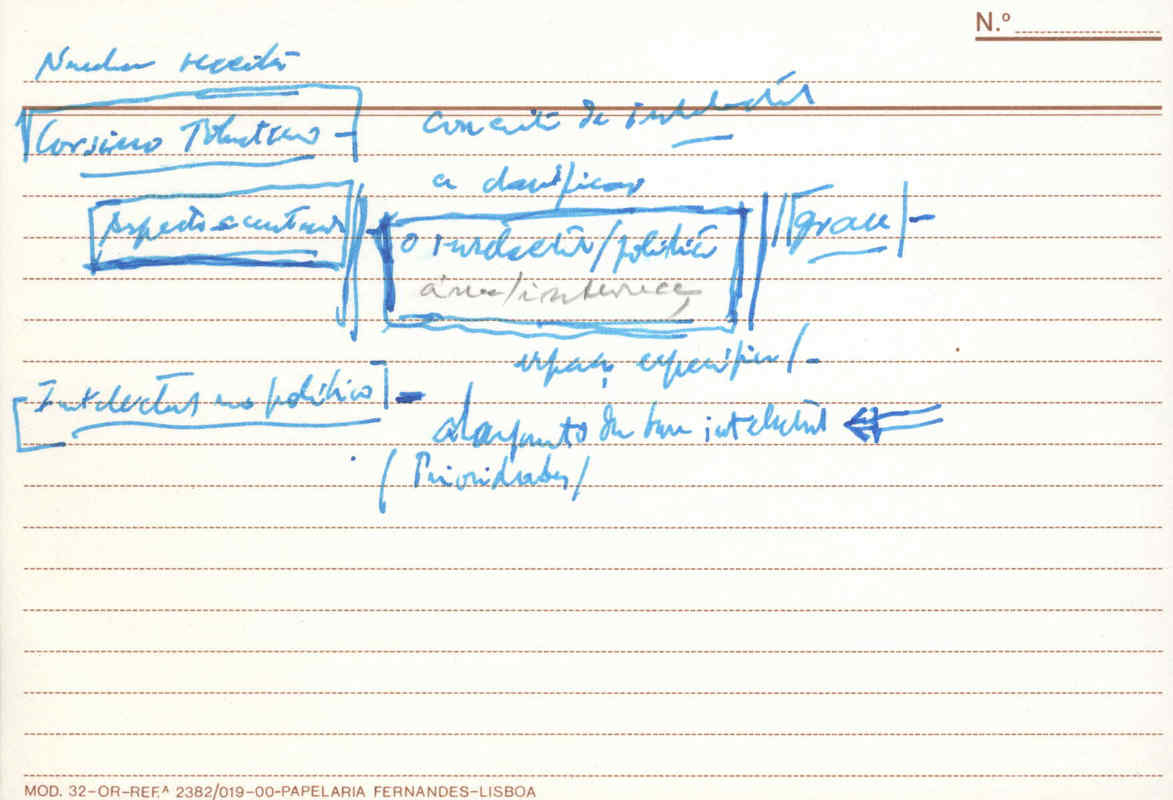 N.º
Corsino Tolentino -
conceito de intelectual
a clarificar
Aspecto a
o intelectual/político
grau -
área/interveç
espaço específico/-
Intelectual no político -
intelectual
(Prioridades/
MOD. 32-OR-REF.ᴬ 2382/019-00-PAPELARIA FERNANDES-LISBOA